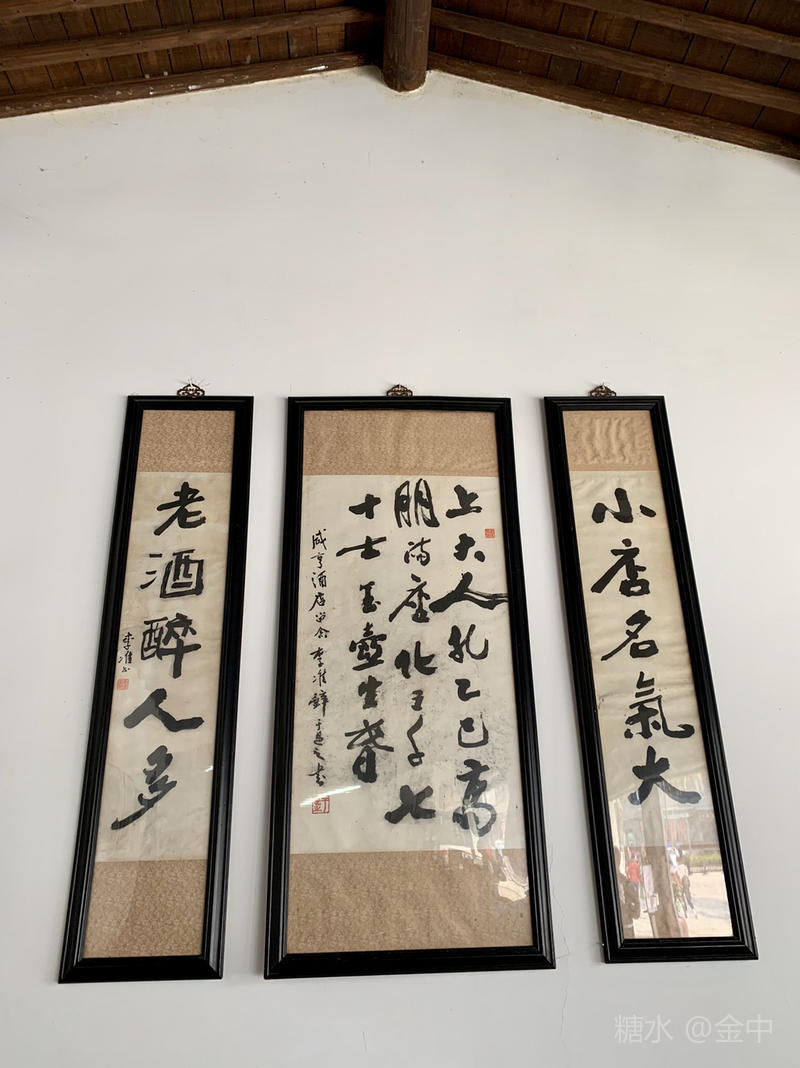 小店名氣大
上大人孔乙己高
朋满座化三千七
十士玉壺生春
咸亨酒店留念 李准辭 于是之书
老酒醉人多
李准书
糖水 @金中